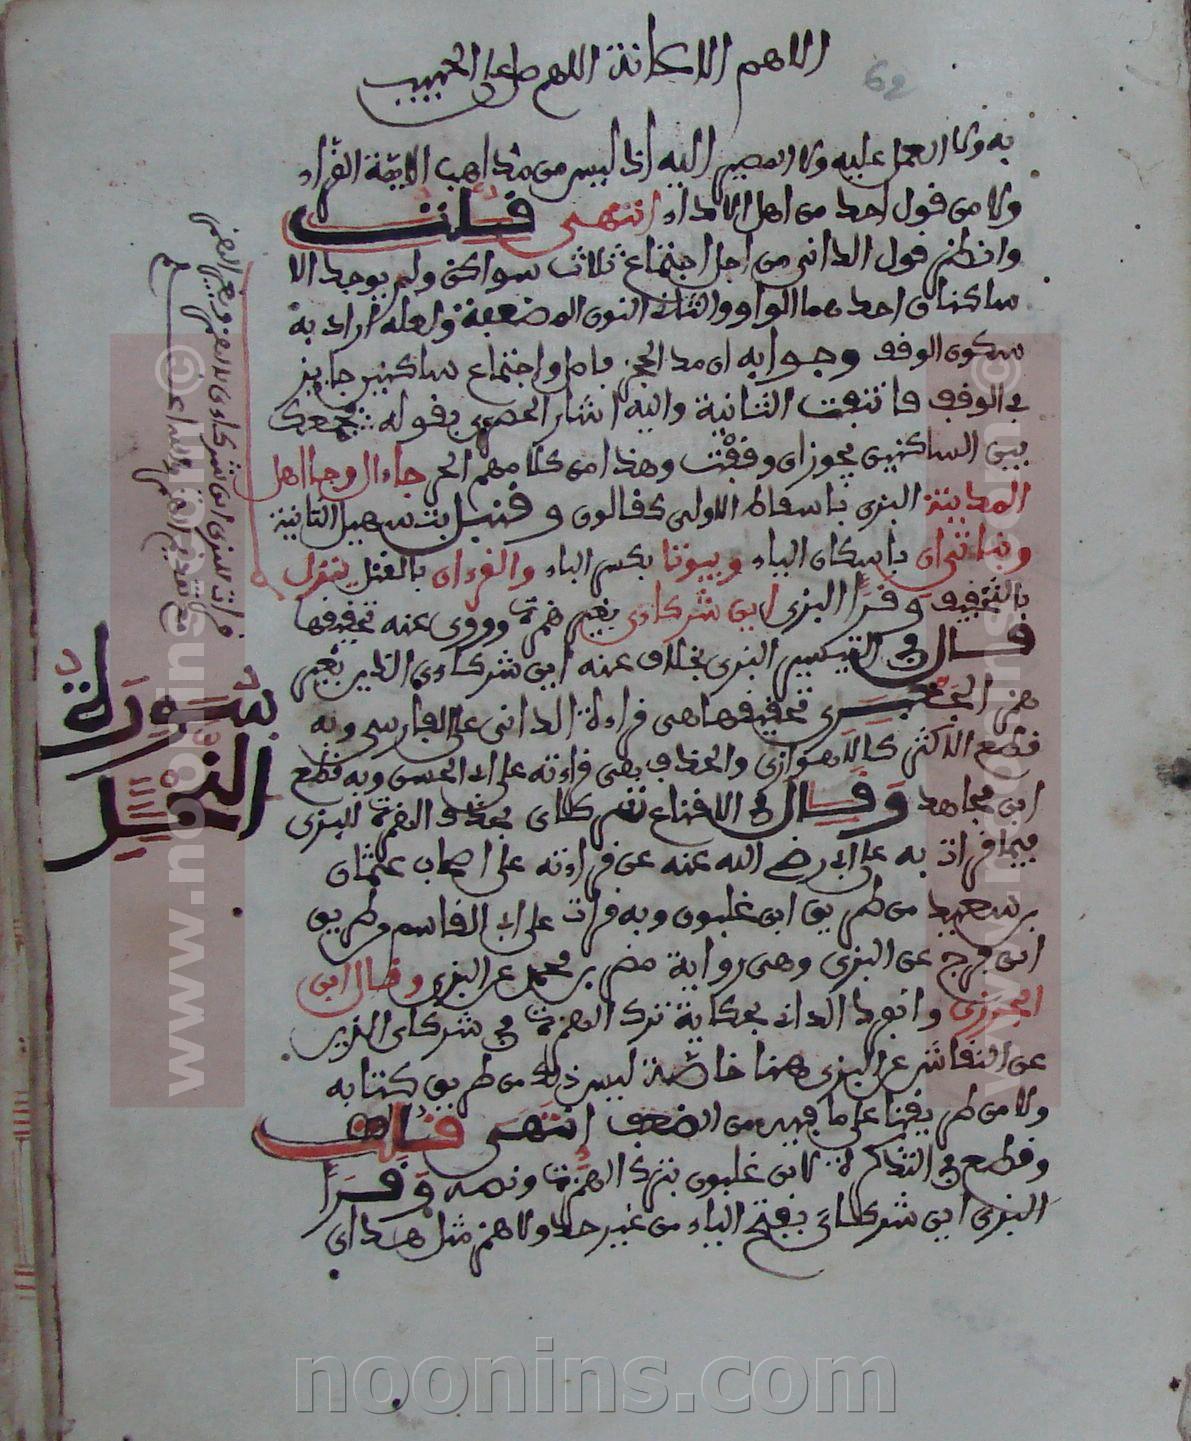 اللهم صل على الحبيب
62
به ولا العمل عليه ولا المصير اليه اذ ليس من مذاهب الايمة القراء
ولا من قول احد من اهل الاداء انتهى قلت
واظن قول الداني من اجل اجتماع ثلاث سواكن ولم يوجد الا
ساكنان احدهما الواو والثاني النون المضعفة ولعله اراد به
سكون الوقف وجوابه ان مد الحجز واجتماع ساكنين جايز
في الوقف فانتفت الثانية واليه اشار الحصري بقوله فجمعك
بين الساكنين يجوز ان وقفت وهذا من كلامهم الحر جاء ال وجا اهل
المدينة البزي باسقاط الاولى كقالون وقنبل بتسهيل الثانية
وبناتي ان باسكان الياء وبيوتا بكسر الباء والقرءان بالنقل ينزل
بالتخفيف وقرأ البزي اين شركاءي بغير همزة وروي عنه تحقيقها
قال في التيسير البزي بخلاف عنه اين شركاءي الذين بغير
همز الجعبري تحقيقها هي قراءة الداني على الفارسي وبه
قطع الاكثر كالاهوازي والحذف هي قراءته على ابي الحسن وبه قطع
ابن مجاهد وقال في الاقناع شركاي بحذف الهمزة للبزي
فيما قرات به على ابي رضي الله عنه عن قراءته على اصحاب عثمان
بن سعيد من طريق ابن غلبون وبه قرات على ابي القاسم وطريق
ابن فرح عن البزي وهي رواية مضر بن محمد عن البزي وقال ابن
الجزري وانفرد الداني بحكاية ترك الهمزة في شركاي الذين
عن النقاش عن البزي ههنا خاصة ليس ذلك من طريق كتابه
ولا من طريقنا على ما فيه من الضعف انتهى قلت
وقطع في التذكرة لابن غلبون بترك الهمزة ونصه وقرأ
البزي اين شركاي بفتح الياء من غير مد ولا همز مثل هداي
سورة
النحل
www.noonins.com
©
www.noonins.com
©
noonins.com